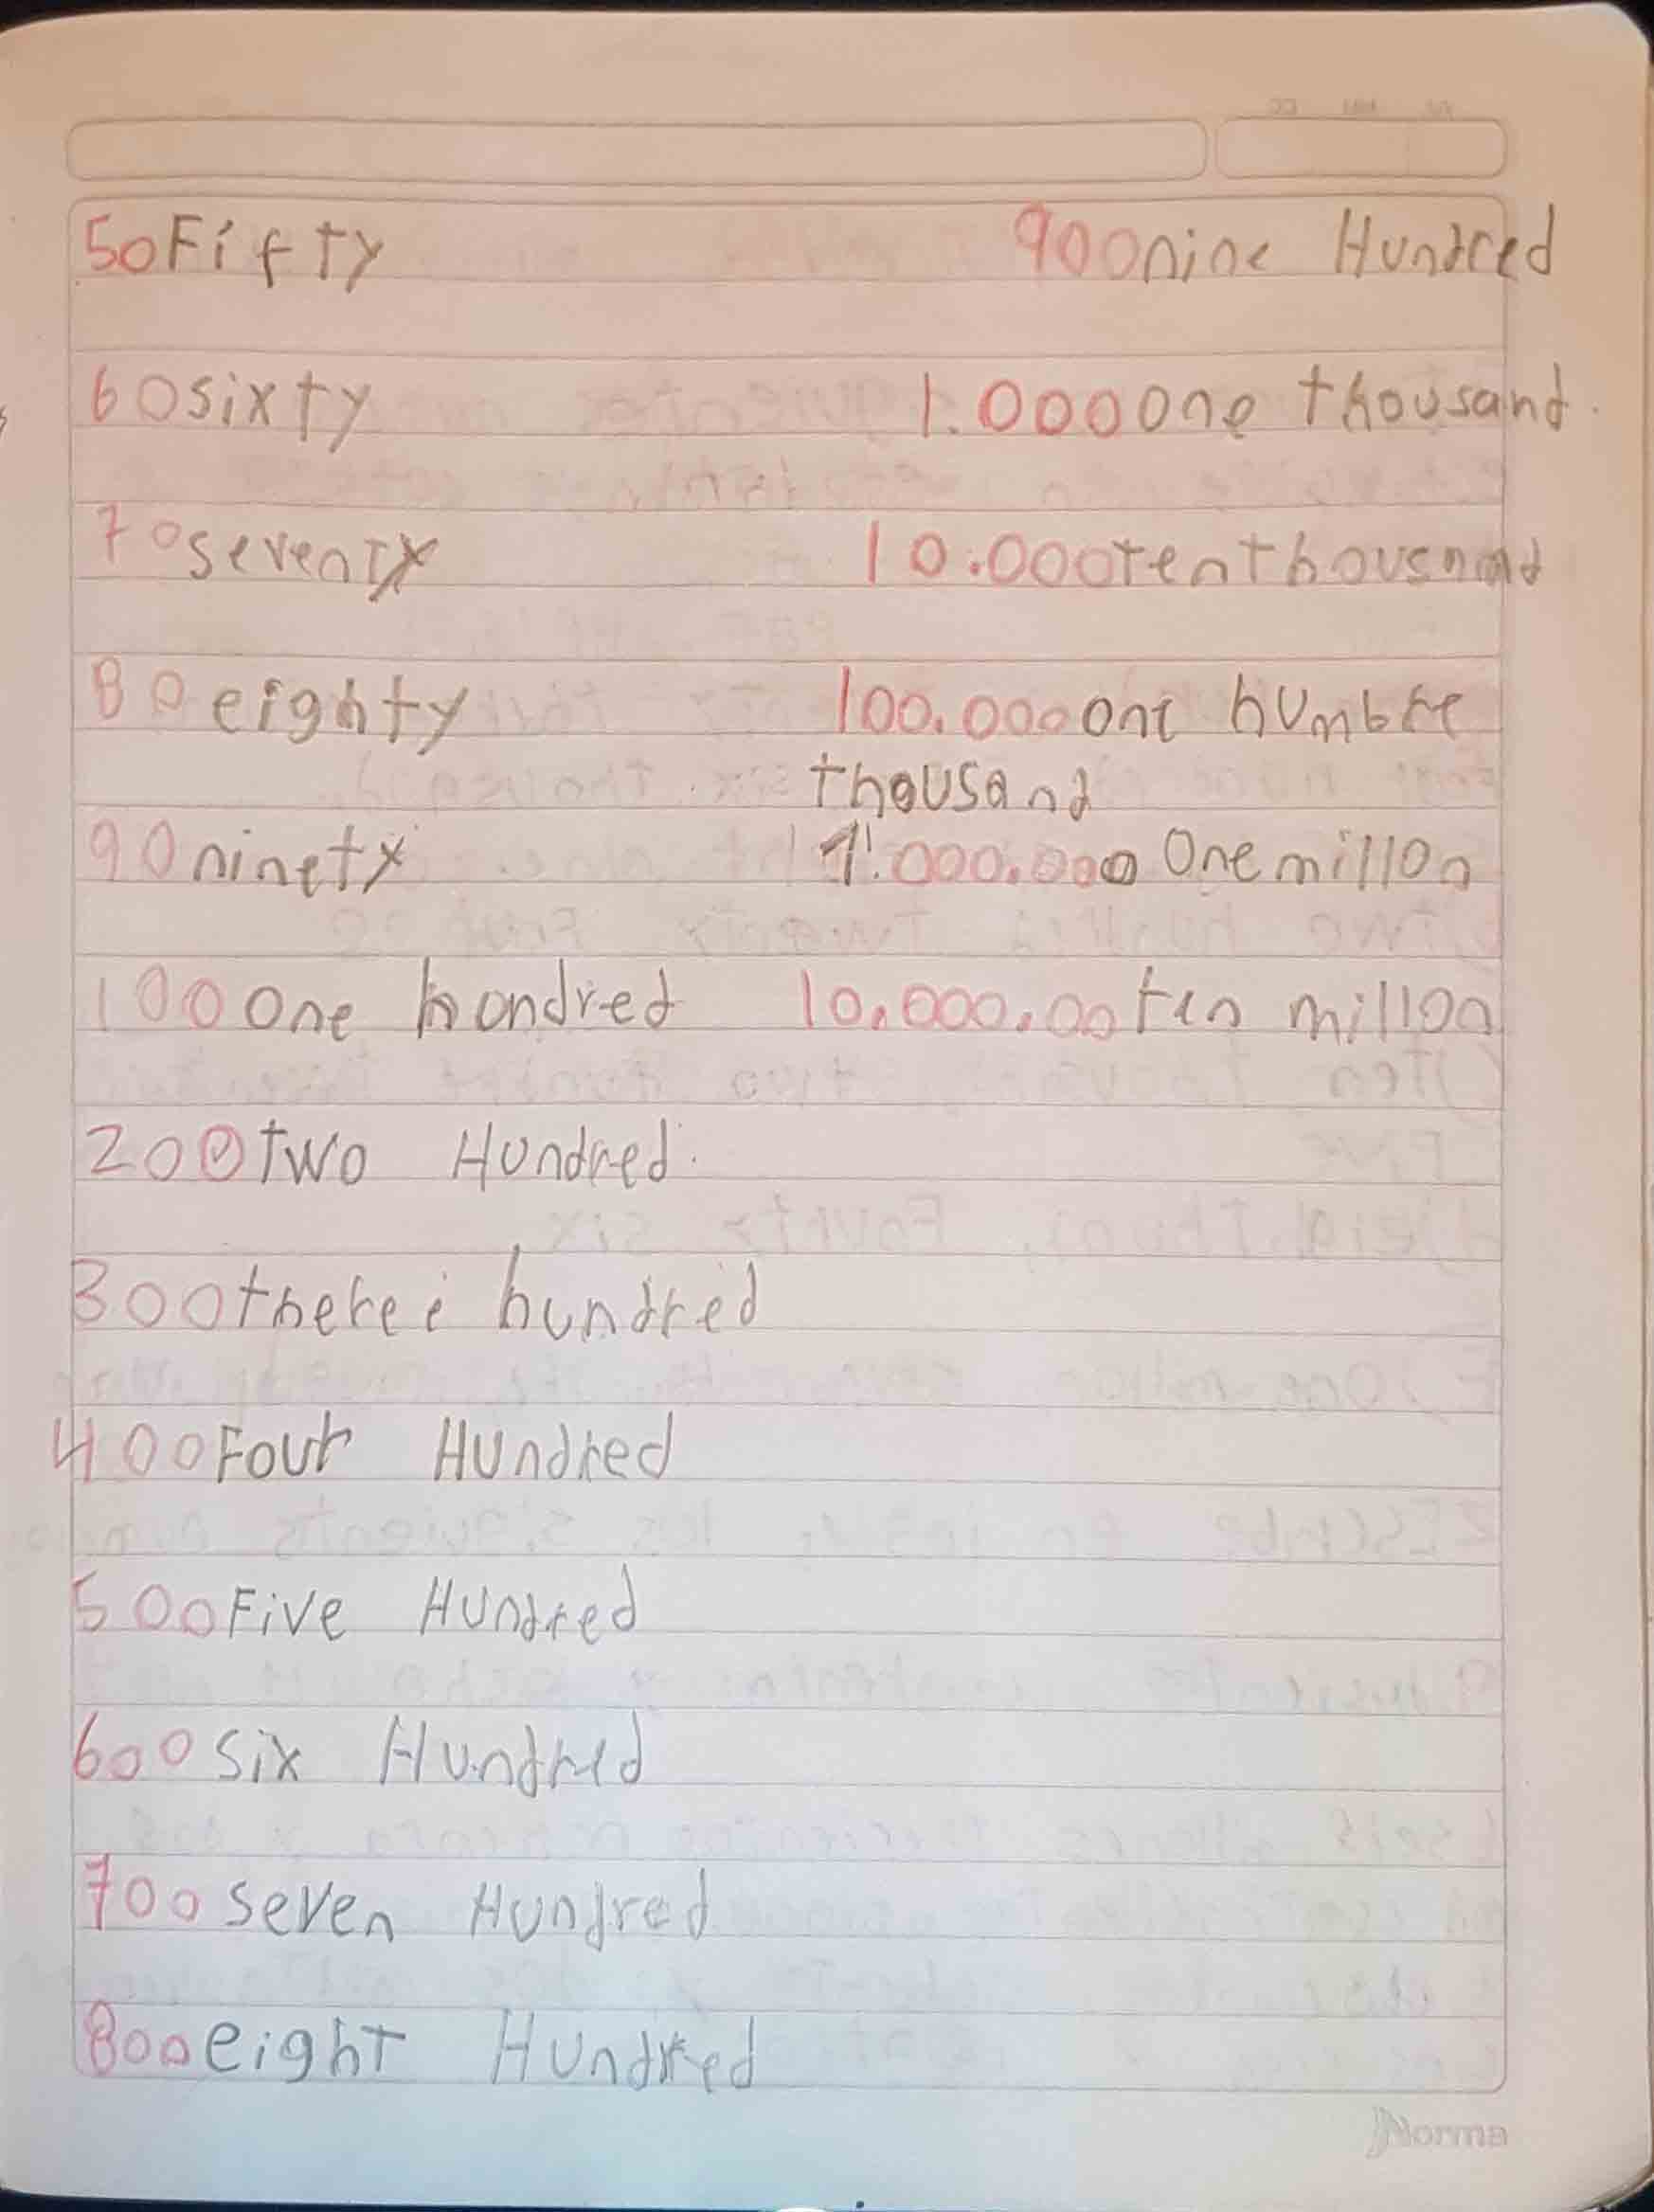 50 Fifty
60 sixty
70 seventy
80 eighty
90 ninety
100 One hondred
200 two Hundred.
300 theree hundred
400 Four Hundred
500 Five Hundred
600 six Hundred
700 seven Hundred
800 eight Hundred
900 nine Hundred
1.000 One thousand.
10.000 ten thousnand
100.000 one humbre
thousand
1'.000.000 One millon
10.000.00 ten millon
Norma